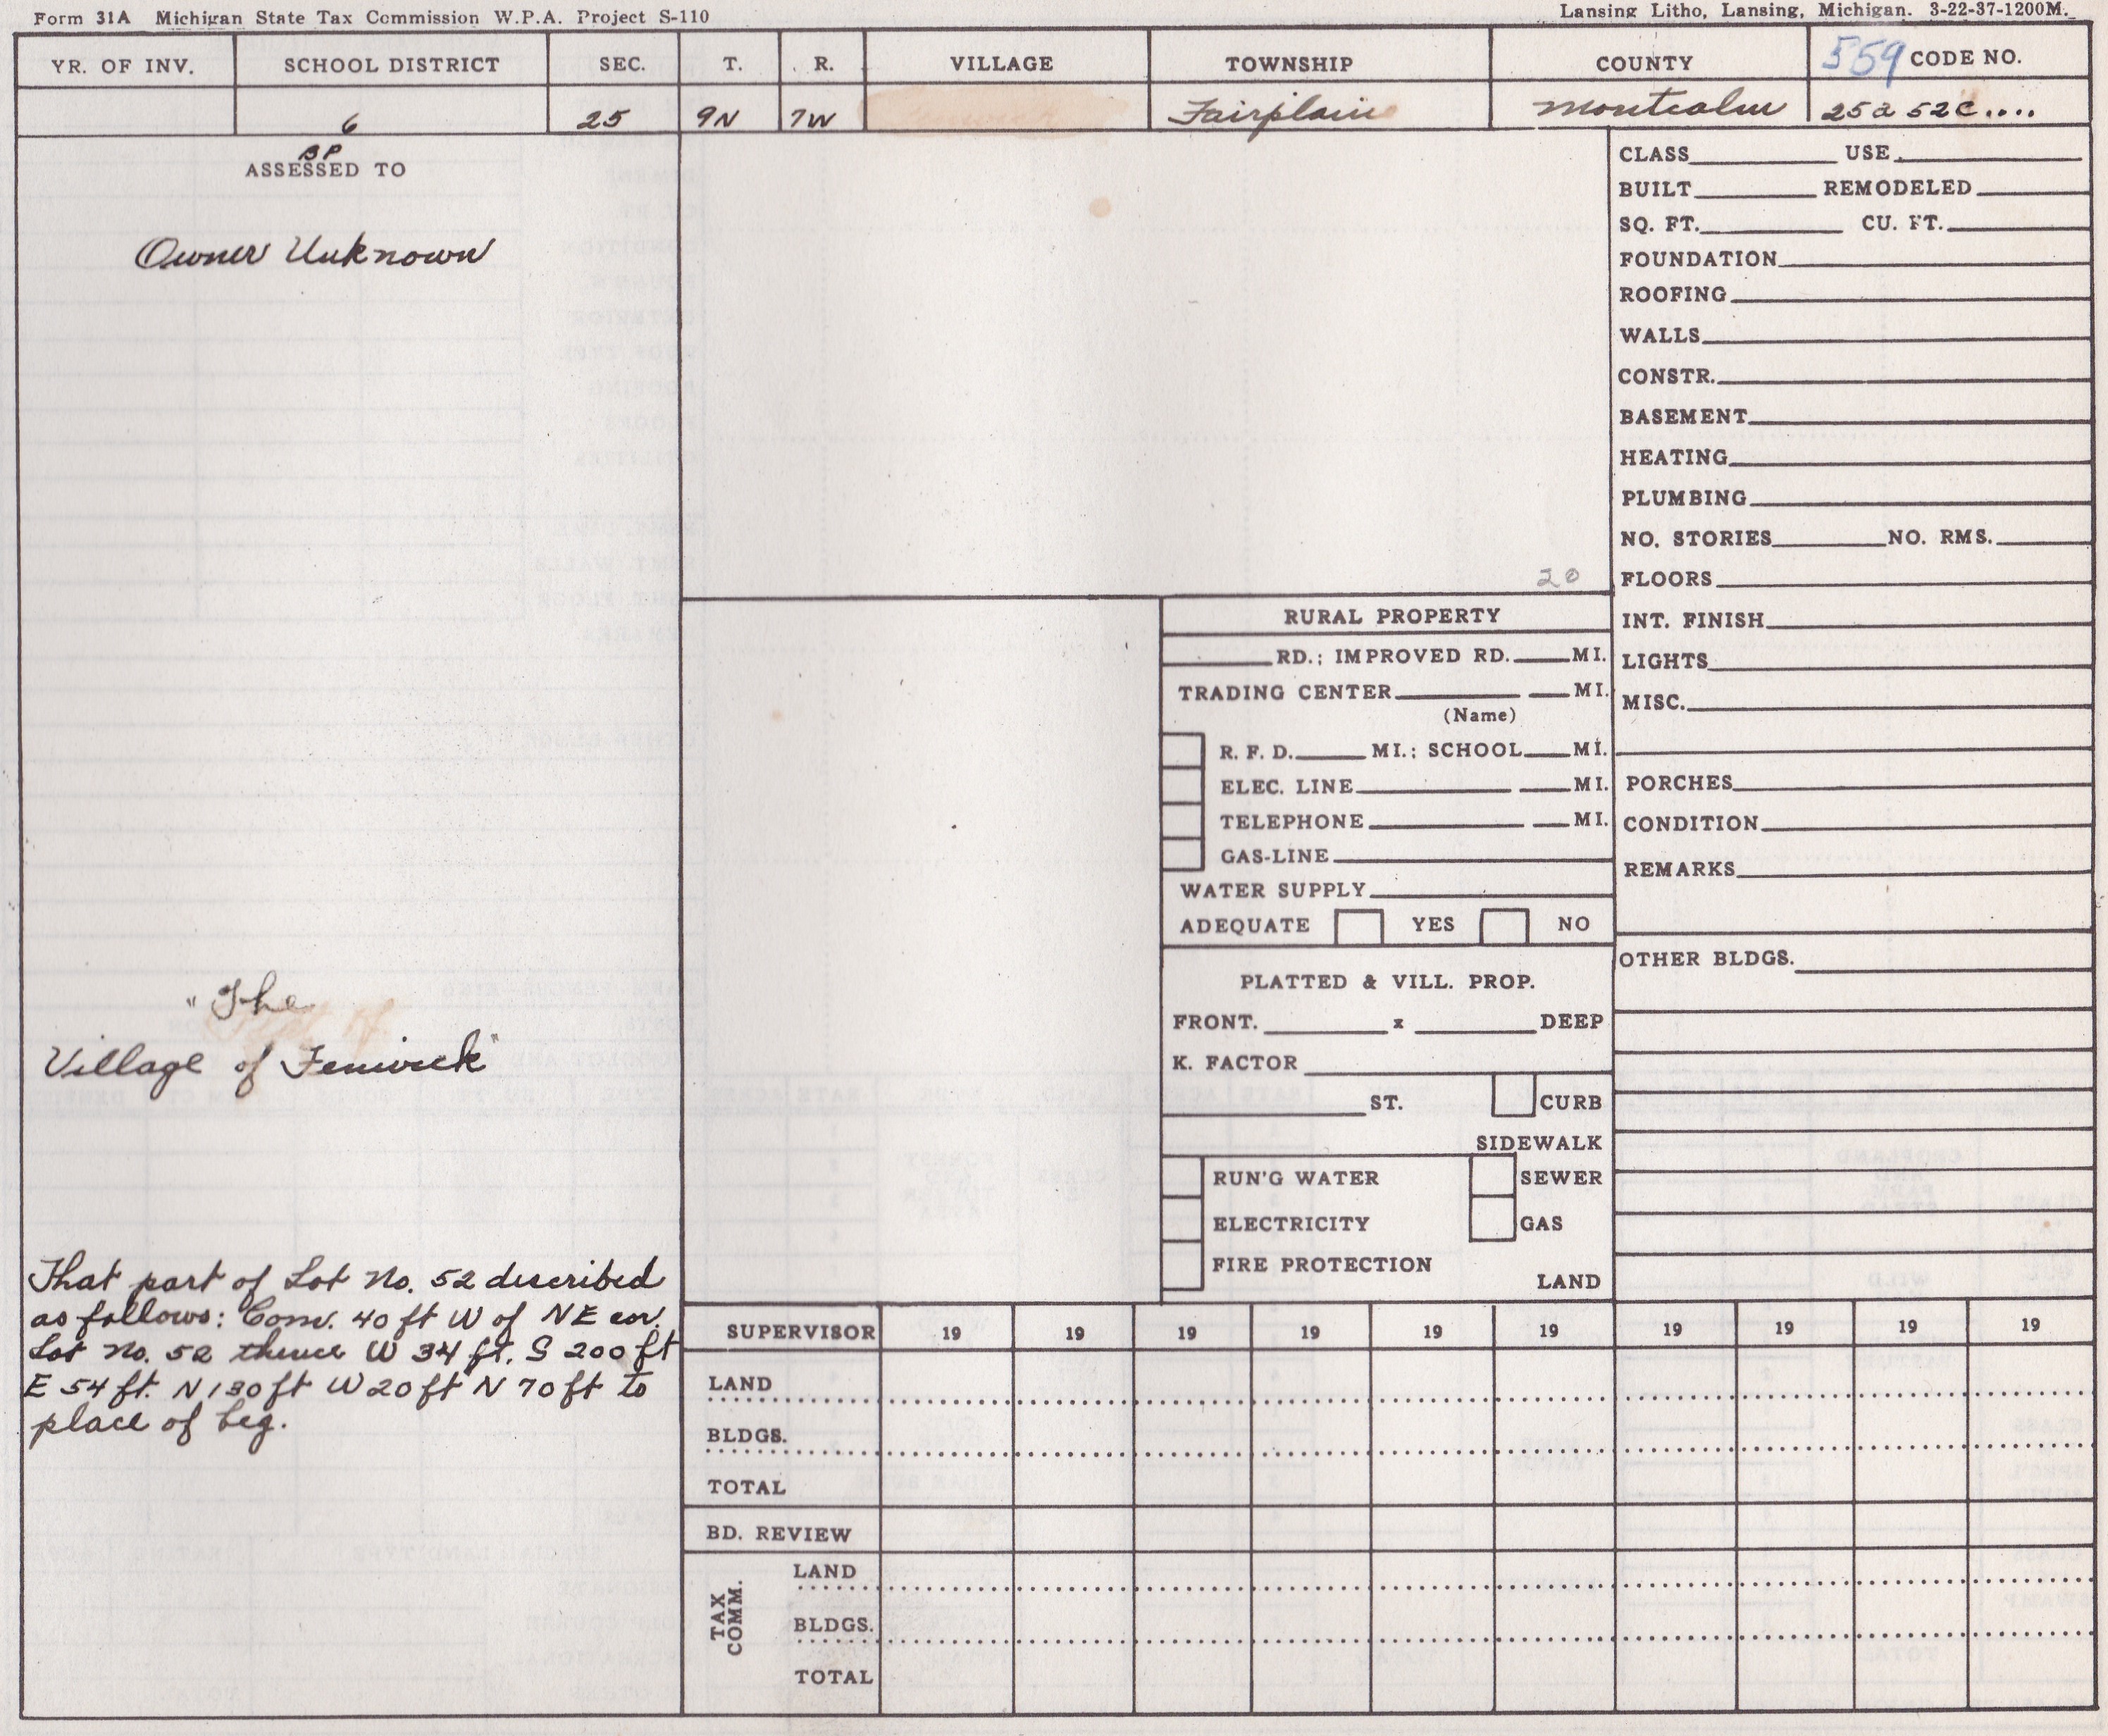 Form 31A Michigan State Tax Commission W.P.A. Project S-110
Lansing Litho, Lansing, Michigan. 3-22-37-1200M.
YR. OF INV. SCHOOL DISTRICT SEC. T. R. VILLAGE TOWNSHIP COUNTY 559 CODE NO.
6 25 9N 7W Fairplain Montcalm 25a 52c....
BP
ASSESSED TO
Owner Unknown
"The
Village of Fenwick"
That part of Lot No. 52 described
as follows: Com. 40 ft W of NE cor.
Lot No. 52 thence W 34 ft. S 200 ft
E 54 ft. N 130 ft W 20 ft N 70 ft to
place of beg.
20
RURAL PROPERTY
RD.; IMPROVED RD. MI.
TRADING CENTER MI.
(Name)
R. F. D. MI.; SCHOOL MI.
ELEC. LINE MI.
TELEPHONE MI.
GAS-LINE
WATER SUPPLY
ADEQUATE YES NO
PLATTED & VILL. PROP.
FRONT. x DEEP
K. FACTOR
ST. CURB
SIDEWALK
RUN'G WATER SEWER
ELECTRICITY GAS
FIRE PROTECTION
LAND
CLASS USE
BUILT REMODELED
SQ. FT. CU. FT.
FOUNDATION
ROOFING
WALLS
CONSTR.
BASEMENT
HEATING
PLUMBING
NO. STORIES NO. RMS.
FLOORS
INT. FINISH
LIGHTS
MISC.
PORCHES
CONDITION
REMARKS
OTHER BLDGS.
SUPERVISOR 19 19 19 19 19 19 19 19 19 19
LAND
BLDGS.
TOTAL
BD. REVIEW
TAX COMM.
LAND
BLDGS.
TOTAL